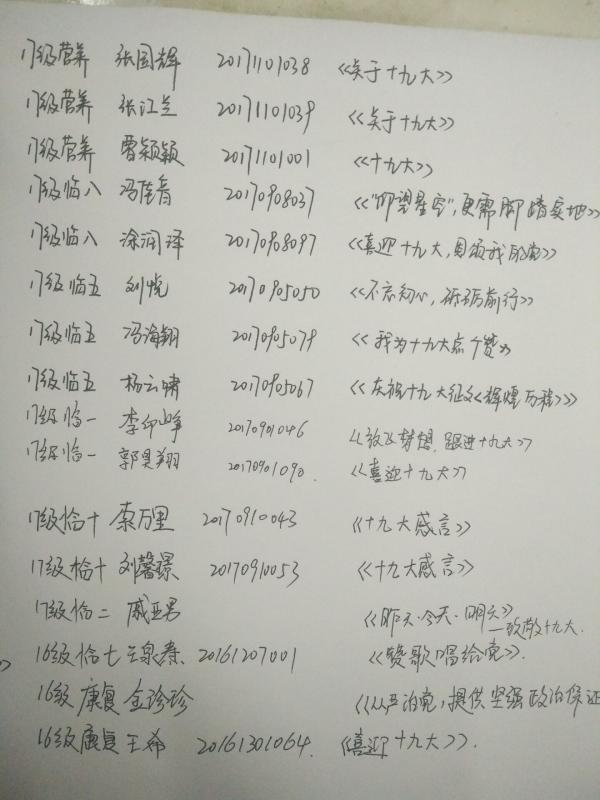 17级营养 张国辉 20171101038 《关于十九大》
17级营养 张江兰 20171101039 《关于十九大》
17级营养 曹颖颖 20171101001 《十九大》
17级临八 冯佳音 20170908037 《"仰望星空",更需脚踏实地》
17级临八 涂润泽 20170908097 《喜迎十九大,身颂我的党》
17级临五 刘悦 20170905050 《不忘初心,砥砺前行》
17级临五 冯海翔 20170905079 《我为十九大点个赞》
17级临五 杨云啸 20170905067 《庆祝十九大征文《辉煌历程》》
17级临一 李印峰 20170901046 《放飞梦想,跟进十九大》
17级临一 郭昊翔 20170901090. 《喜迎十九大》
17级临十 索万里 20170910043 《十九大感言》
17级临十 刘馨璟 20170910053 《十九大感言》
17级临二 戚亚男 《昨天·今天·明天》
一致敬十九大.
16级临七 王泉春. 20161207001 《赞歌唱给党》.
16级康复 金珍珍 《从严治党,提供坚强政治保证
16级康复 王希 20161301064. 《喜迎十九大》.